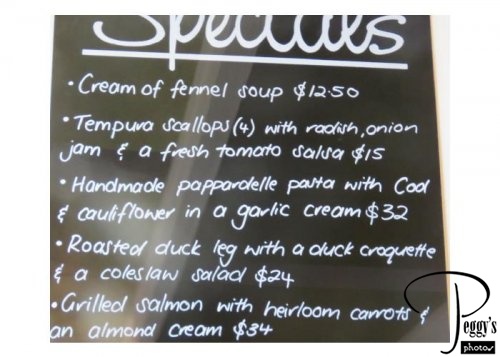 Specials
• Cream of fennel soup $12.50
• Tempura scallops (4) with radish, onion
jam & a fresh tomato salsa $15
• Handmade pappardelle pasta with Cod
& cauliflower in a garlic cream $32
• Roasted duck leg with a duck croquette
& a coleslaw salad $24
• Grilled salmon with heirloom carrots &
an almond cream $34
Peggy's
photos